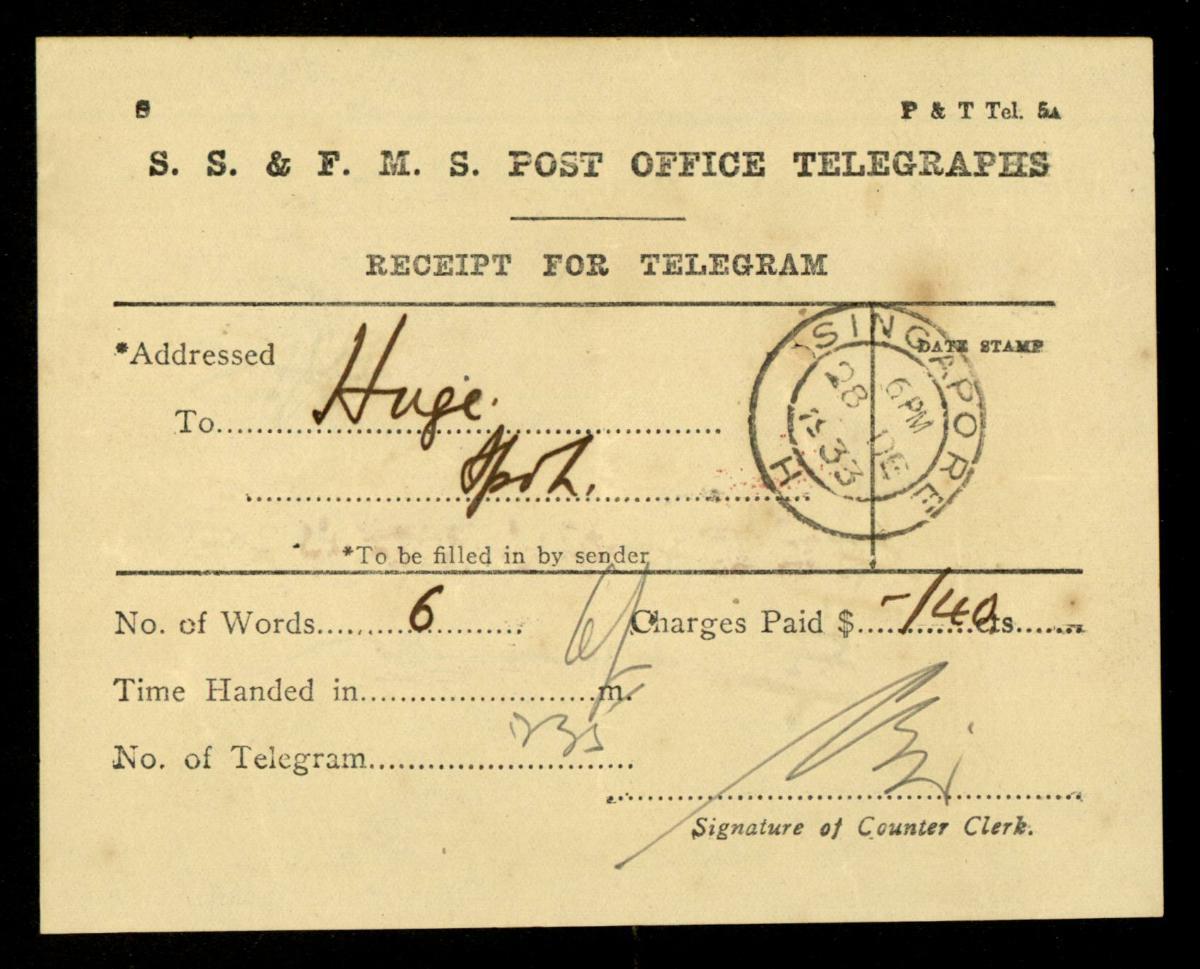 S P & T Tel. 5A
S. S. & F. M. S. POST OFFICE TELEGRAPHS
RECEIPT FOR TELEGRAM
*Addressed
DATE STAMP
SINGAPORE
H
6 PM
28 DE
1933
To Huge.
*To be filled in by sender
No. of Words 6 Charges Paid $ -/40 cts
Time Handed in m.
No. of Telegram 235
Signature of Counter Clerk.